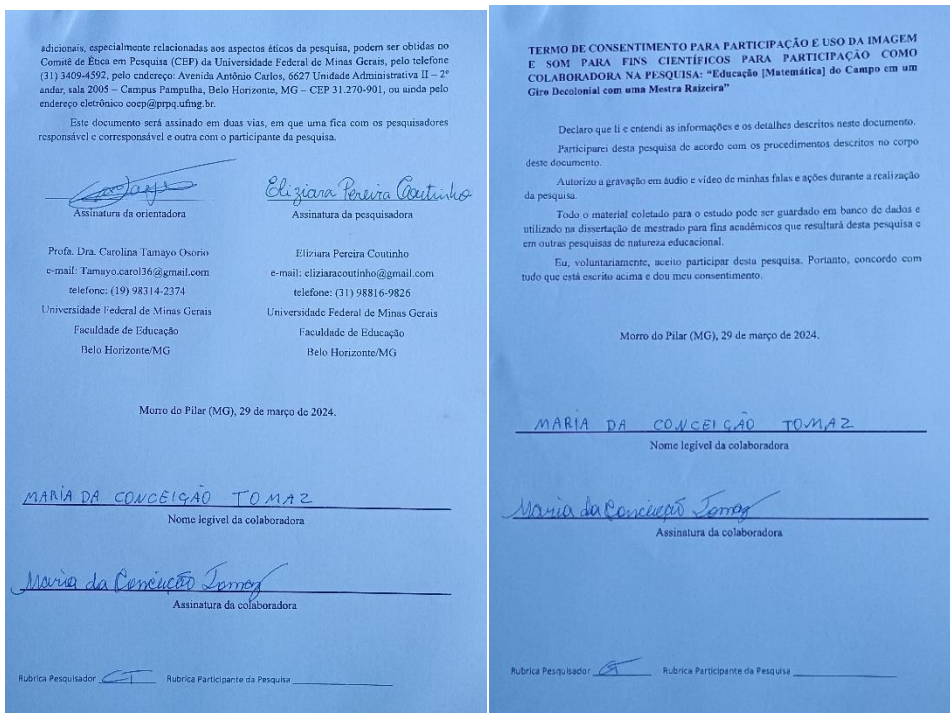 adicionais, especialmente relacionadas aos aspectos éticos da pesquisa, podem ser obtidas no
Comitê de Ética em Pesquisa (CEP) da Universidade Federal de Minas Gerais, pelo telefone
(31) 3409-4592, pelo endereço: Avenida Antônio Carlos, 6627 Unidade Administrativa II – 2º
andar, sala 2005 – Campus Pampulha, Belo Horizonte, MG – CEP 31.270-901, ou ainda pelo
endereço eletrônico coep@prpq.ufmg.br.
Este documento será assinado em duas vias, em que uma fica com os pesquisadores
responsável e corresponsável e outra com o participante da pesquisa.
Eliziara Pereira Coutinho
Assinatura da orientadora
Assinatura da pesquisadora
Profa. Dra. Carolina Tamayo Osorio
e-mail: Tamayo.carol36@gmail.com
telefone: (19) 98314-2374
Universidade Federal de Minas Gerais
Faculdade de Educação
Belo Horizonte/MG
Eliziara Pereira Coutinho
e-mail: eliziaracoutinho@gmail.com
telefone: (31) 98816-9826
Universidade Federal de Minas Gerais
Faculdade de Educação
Belo Horizonte/MG
Morro do Pilar (MG), 29 de março de 2024.
MARIA DA CONCEIÇÃO TOMAZ
Nome legível da colaboradora
Maria da Conceição Tomaz
Assinatura da colaboradora
Rubrica Pesquisador CT Rubrica Participante da Pesquisa
TERMO DE CONSENTIMENTO PARA PARTICIPAÇÃO E USO DA IMAGEM
E SOM PARA FINS CIENTÍFICOS PARA PARTICIPAÇÃO COMO
COLABORADORA NA PESQUISA: “Educação [Matemática] do Campo em um
Giro Decolonial com uma Mestra Raizeira”
Declaro que li e entendi as informações e os detalhes descritos neste documento.
Participarei desta pesquisa de acordo com os procedimentos descritos no corpo
deste documento.
Autorizo a gravação em áudio e vídeo de minhas falas e ações durante a realização
da pesquisa.
Todo o material coletado para o estudo pode ser guardado em banco de dados e
utilizado na dissertação de mestrado para fins acadêmicos que resultará desta pesquisa e
em outras pesquisas de natureza educacional.
Eu, voluntariamente, aceito participar desta pesquisa. Portanto, concordo com
tudo que está escrito acima e dou meu consentimento.
Morro do Pilar (MG), 29 de março de 2024.
MARIA DA CONCEIÇÃO TOMAZ
Nome legível da colaboradora
Maria da Conceição Tomaz
Assinatura da colaboradora
Rubrica Pesquisador CT Rubrica Participante da Pesquisa